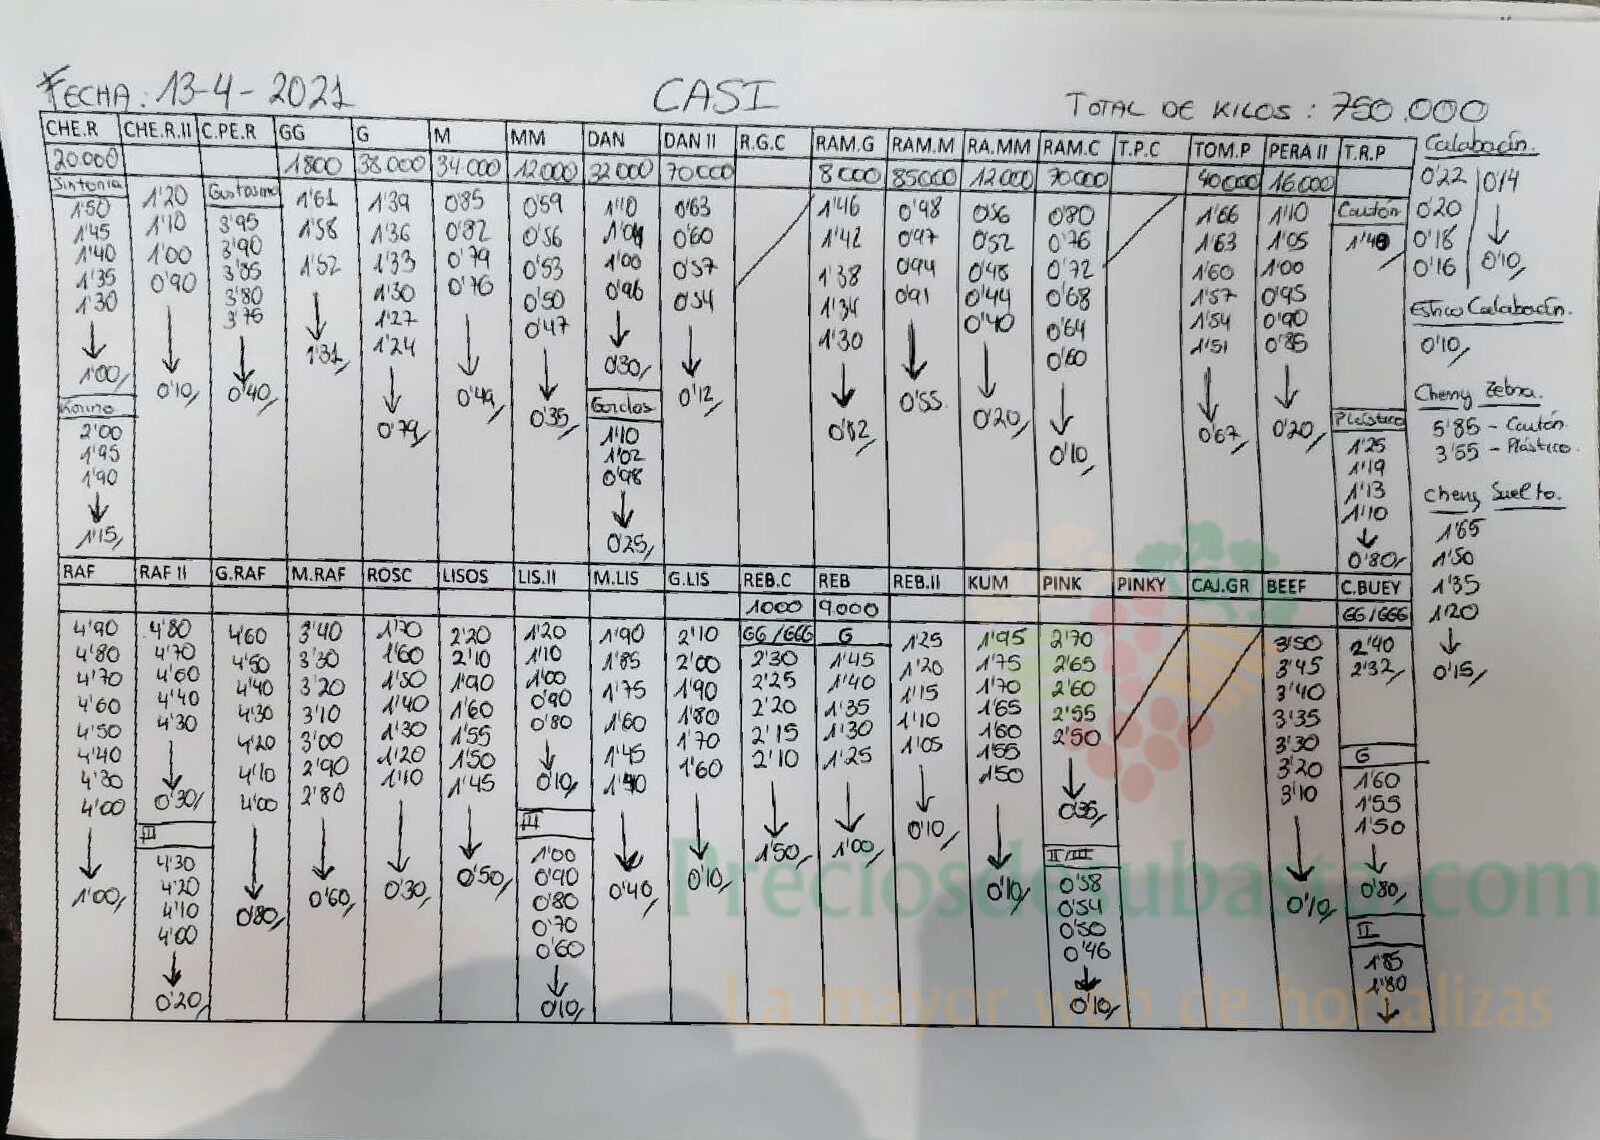 FECHA: 13-4-2021 CASI TOTAL DE KILOS: 750.000
CHE.R CHE.R.II C.PE.R GG G M MM DAN DAN II R.G.C RAM.G RAM.M RA.MM RAM.C T.P.C TOM.P PERA II T.R.P
20.000 1800 38.000 34.000 12.000 32000 70000 8000 85000 12.000 70000 40000 16.000
Sintonia
1'50
1'45
1'40
1'35
1'30
1'00/
2'00
1'95
1'90
1'15/
1'20
1'10
1'00
0'90
0'10/
3'95
3'90
3'85
3'80
3'75
0'40/
1'61
1'58
1'52
1'31/
1'39
1'36
1'33
1'30
1'27
1'24
0'79/
0'85
0'82
0'79
0'76
0'49/
0'59
0'56
0'53
0'50
0'47
0'35/
1'10
1'00
0'96
0'30/
Gordos
1'10
1'02
0'98
0'25/
0'63
0'60
0'57
0'54
0'12/
1'46
1'42
1'38
1'34
1'30
0'82/
0'98
0'97
0'94
0'91
0'55
0'56
0'52
0'48
0'44
0'40
0'20/
0'80
0'76
0'72
0'68
0'64
0'60
0'10/
1'66
1'63
1'60
1'57
1'54
1'51
0'67/
1'10
1'05
1'00
0'95
0'90
0'85
0'20/
Cartón
Plástico
1'25
1'19
1'13
1'10
0'80/
Calabacín.
0'22
0'20
0'18
0'16
0'14
0'10/
Calabacín.
0'10/
Cherry Zebra.
5'85 - Cartón.
3'55 - Plástico.
Cherry Suelto.
1'65
1'50
1'35
1'20
0'15/
RAF RAF II G.RAF M.RAF ROSC LISOS LIS.II M.LIS G.LIS REB.C REB REB.II KUM PINK PINKY CAJ.GR BEEF C.BUEY
1000 9.000 GG/GGG
4'90
4'80
4'70
4'60
4'50
4'40
4'30
4'00
1'00/
4'80
4'70
4'60
4'40
4'30
0'30/
III
4'30
4'20
4'10
4'00
0'20/
4'60
4'50
4'40
4'30
4'20
4'10
4'00
0'80/
3'40
3'30
3'20
3'10
3'00
2'90
2'80
0'60/
1'70
1'60
1'50
1'40
1'30
1'20
1'10
0'30/
2'20
2'10
1'90
1'60
1'55
1'50
1'45
0'50/
1'20
1'10
1'00
0'90
0'80
0'10/
III
1'00
0'90
0'80
0'70
0'60
0'10/
1'90
1'85
1'75
1'60
1'45
0'40/
2'10
2'00
1'90
1'80
1'70
1'60
0'10/
GG/GGG
2'30
2'25
2'20
2'15
2'10
1'50/
G
1'45
1'40
1'35
1'30
1'25
1'00/
1'25
1'20
1'15
1'10
1'05
0'10/
1'95
1'75
1'70
1'65
1'60
1'55
1'50
0'10/
2'70
2'65
2'60
2'55
2'50
0'35/
II/III
0'58
0'54
0'50
0'46
0'10/
3'50
3'45
3'40
3'35
3'30
3'20
3'10
0'10/
2'40
2'32/
G
1'60
1'55
1'50
0'80/
II
1'85
1'80
Preciosdesubasta.com
La mayor web de hortalizas